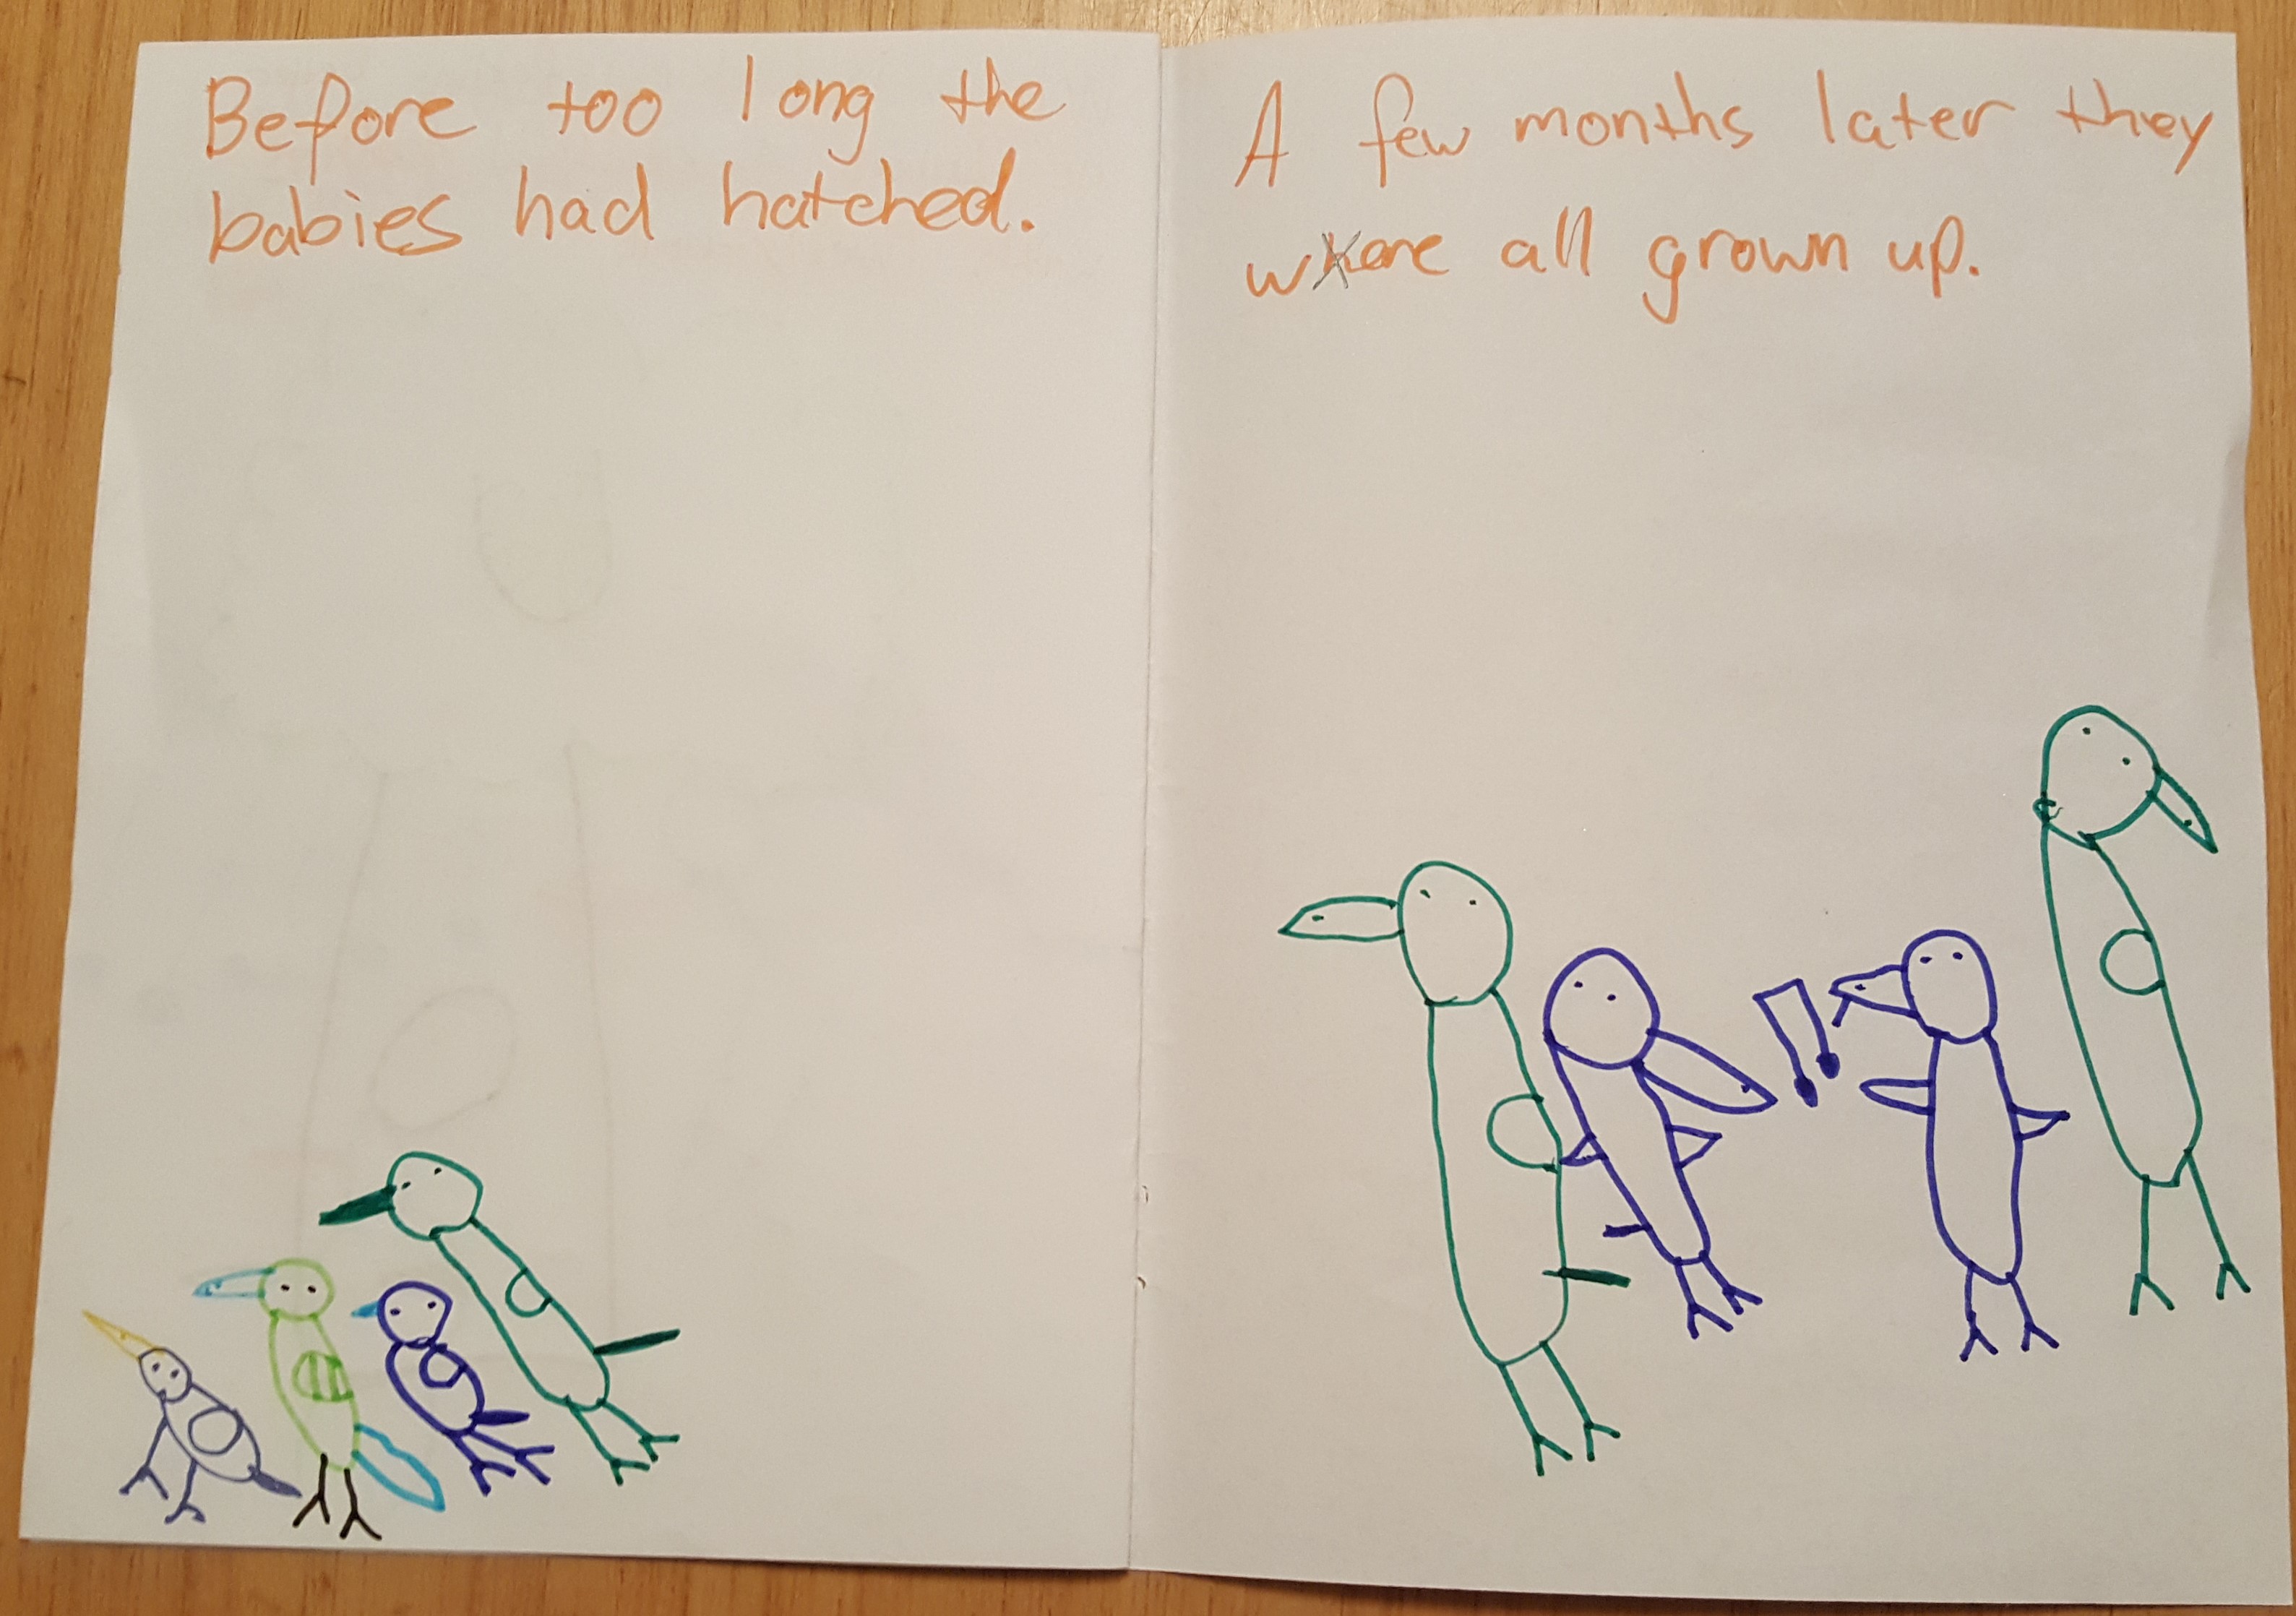 Before too long the
babies had hatched.
A few months later they
were all grown up.